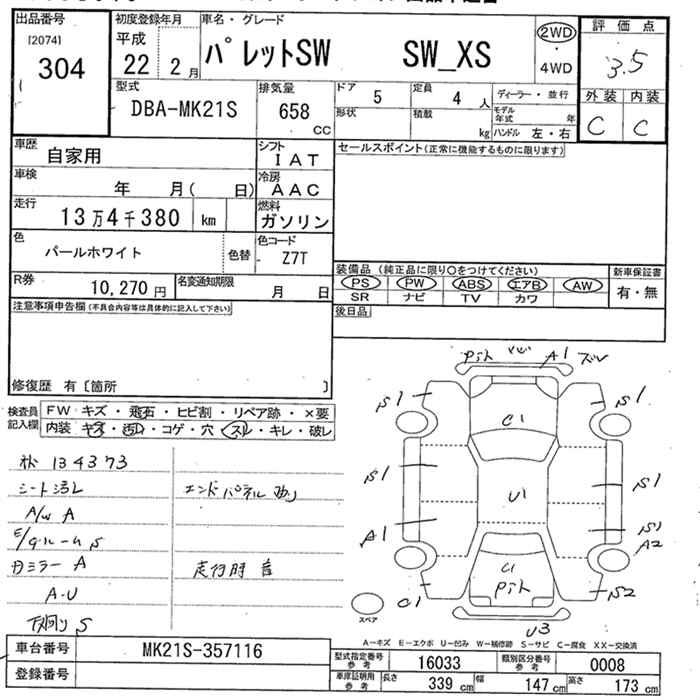 出品番号
[2074]
304
初度登録年月
平成
22 2 月
車名・グレード
パレットSW SW_XS
2WD
・
4WD
評価点
3.5
外装 内装
C C
型式
DBA-MK21S
排気量
658
CC
ドア 5
定員 4 人
形状
積載 kg
ディーラー・並行
モデル年式 年
ハンドル 左・右
車歴
自家用
シフト
IAT
セールスポイント(正常に機能するものに限ります)
車検
年 月( 日)
冷房
AAC
走行
13万4千380 km
燃料
ガソリン
色
パールホワイト
色替
色コード
Z7T
装備品 (純正品に限り○をつけてください)
新車保証書
PS PW ABS エアB AW
有・無
SR ナビ TV カワ
R券
10,270 円
名変通知期限
月 日
後日品
注意事項申告欄(不具合内容等は具体的に記入して下さい)
修復歴 有〔箇所 〕
検査員
記入欄
FW キズ・飛石・ヒビ割・リペア跡・×要
内装 キズ・汚れ・コゲ・穴・スレ・キレ・破レ
134373
シート汚レ
エンドパネル
A/W A
ミラー A
走行時 音
A・U
下廻り S
A1
S1
S1
C1
S1
S1
U1
A1
S1
A2
C1
C1
S2
U3
スペア
A-キズ E-エクボ U-凹み W-補修跡 S-サビ C-腐食 XX-交換済
車台番号
MK21S-357116
登録番号
型式指定番号
参考
16033
類別区分番号
参考
0008
車庫証明用
参考
長さ 339 cm
幅 147 cm
高さ 173 cm